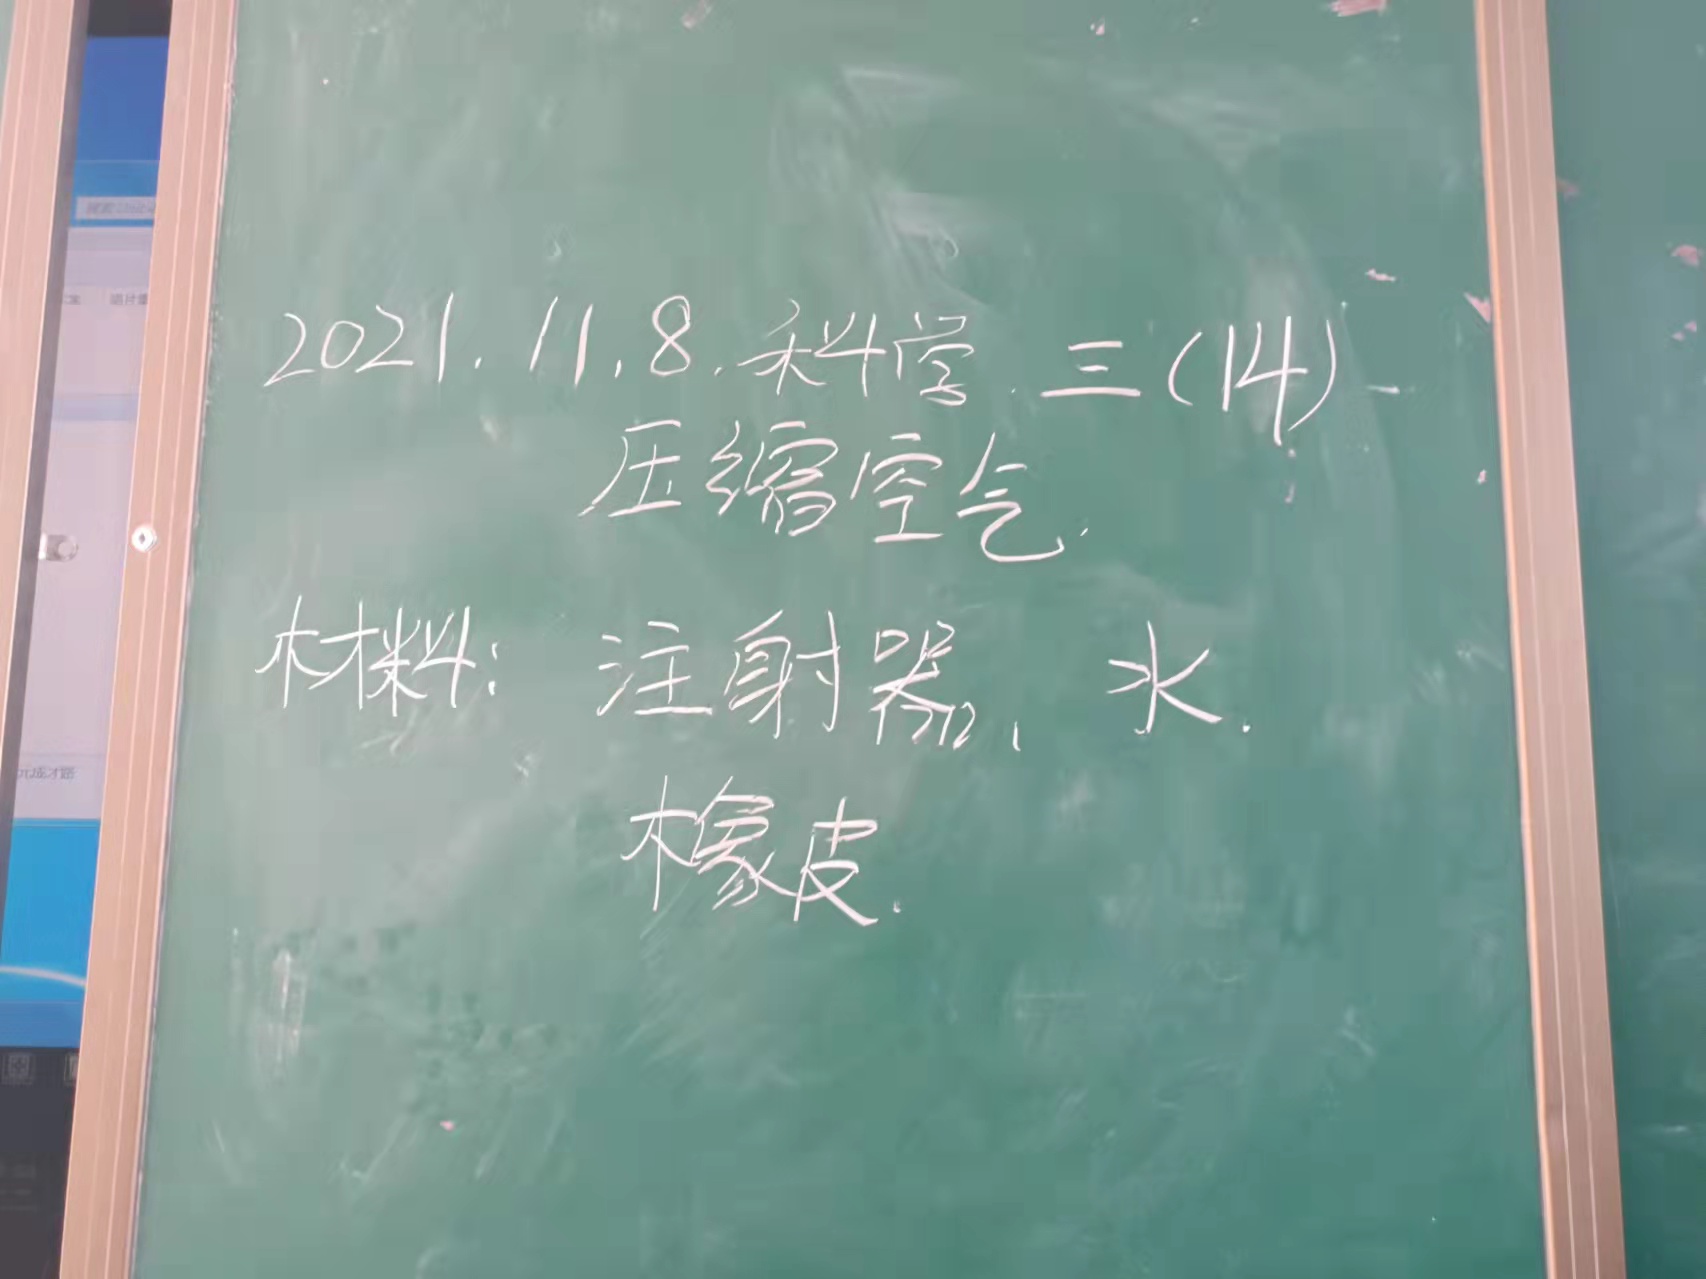 2021.11.8.科学.三(14)
压缩空气.
材料: 注射器、水.
橡皮.